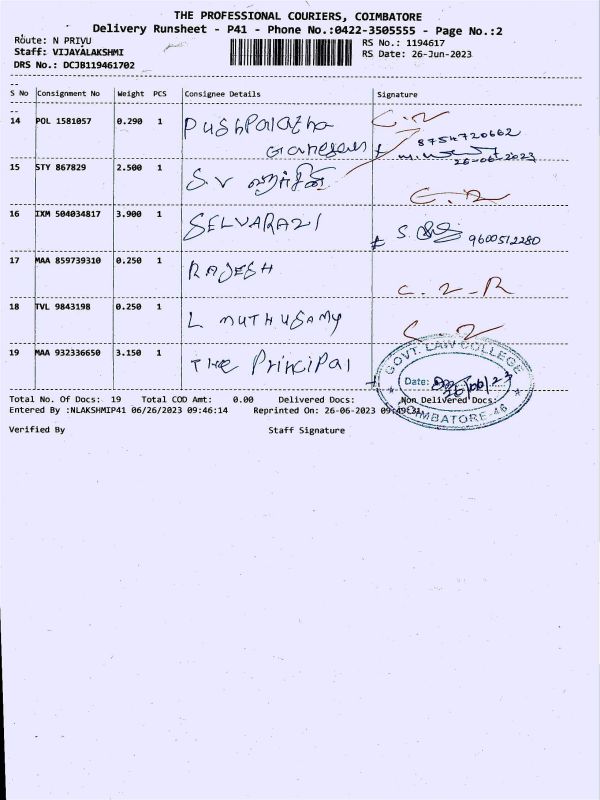 THE PROFESSIONAL COURIERS, COIMBATORE
Delivery Runsheet - P41 - Phone No.:0422-3505555 - Page No.:2
Route: N PRIYU
Staff: VIJAYALAKSHMI
DRS No.: DCJB119461702
RS No.: 1194617
RS Date: 26-Jun-2023
S No Consignment No Weight PCS Consignee Details Signature
14 POL 1581057 0.290 1 Pushpalatha
Ganesan
8754720662
26-06-2023
15 STY 867829 2.500 1 S.V
16 IXM 504034817 3.900 1 SELVARAZI
S. 9600512280
17 MAA 859739310 0.250 1 RAJESH
18 TVL 9843198 0.250 1 L MUTHUSAMY
19 MAA 932336650 3.150 1 THE Principal
GOVT. LAW COLLEGE
Date:
COIMBATORE-46
Total No. Of Docs: 19 Total COD Amt: 0.00 Delivered Docs: Non Delivered Docs:
Entered By :NLAKSHMIP41 06/26/2023 09:46:14 Reprinted On: 26-06-2023
Verified By Staff Signature